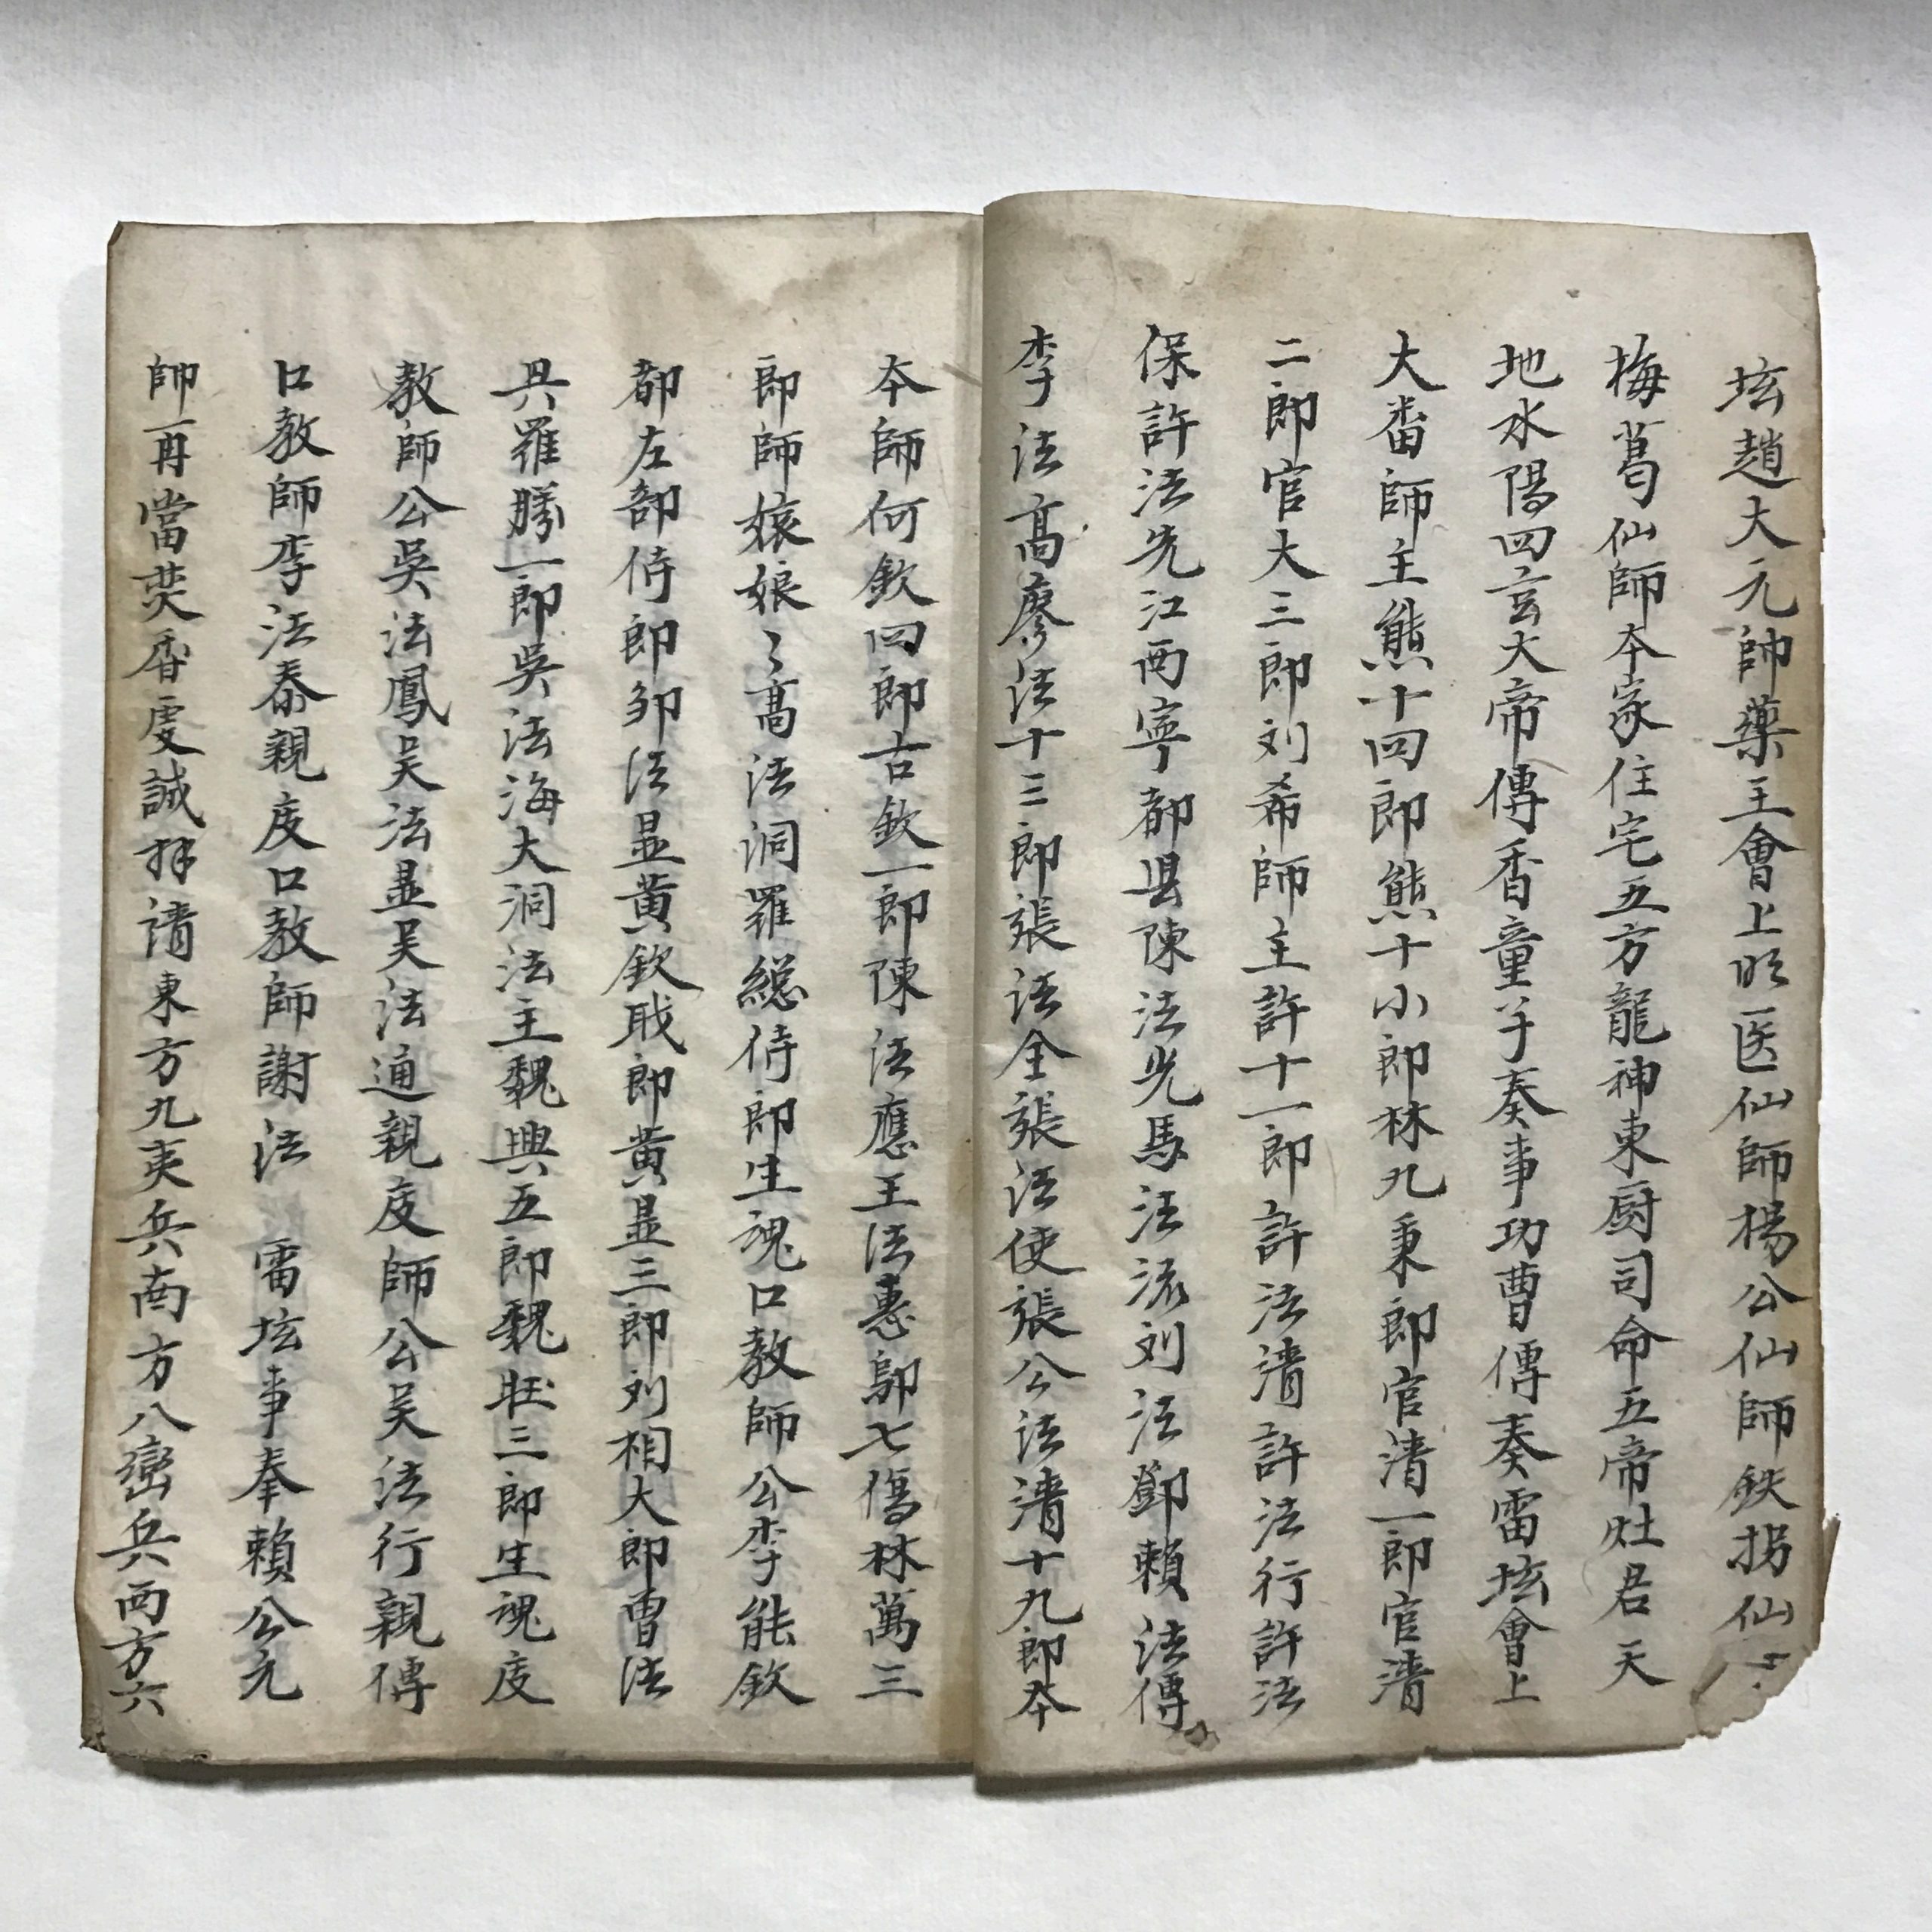 坛趙大元帥藥王會上明医仙師楊公仙師鉄拐仙
梅葛仙師本家住宅五方龍神東厨司命五帝灶君天
地水陽四玄大帝傳香童子奏事功曹傳奏雷坛會上
大畨師主熊十四郎熊十小郎林九秉郎官清一郎官清
二郎官大三郎刘希師主許十一郎許法清許法行許法
保許法先江西寧都县陳法光馬法流刘法鄧賴法傳
李法高廖法十三郎張法全張法使張公法清十九郎本
本師何欽四郎古欽一郎陳法應王法惠鄔七傷林萬三
郎師娘娘〻高法洞羅総侍郎生魂口教師公李能欽
都左部侍郎邹法显黄欽戝郎黄显三郎刘相大郎曹法
具羅勝一郎吳法海大洞法主魏興五郎魏壯三郎生魂度
教師公吳法鳳吴法显吴法通親度師公吴法行親傳
口教師李法泰親度口教師謝法 雷坛事奉賴公元
帥再當焚香虔誠拜請東方九夷兵南方八蠻兵西方六